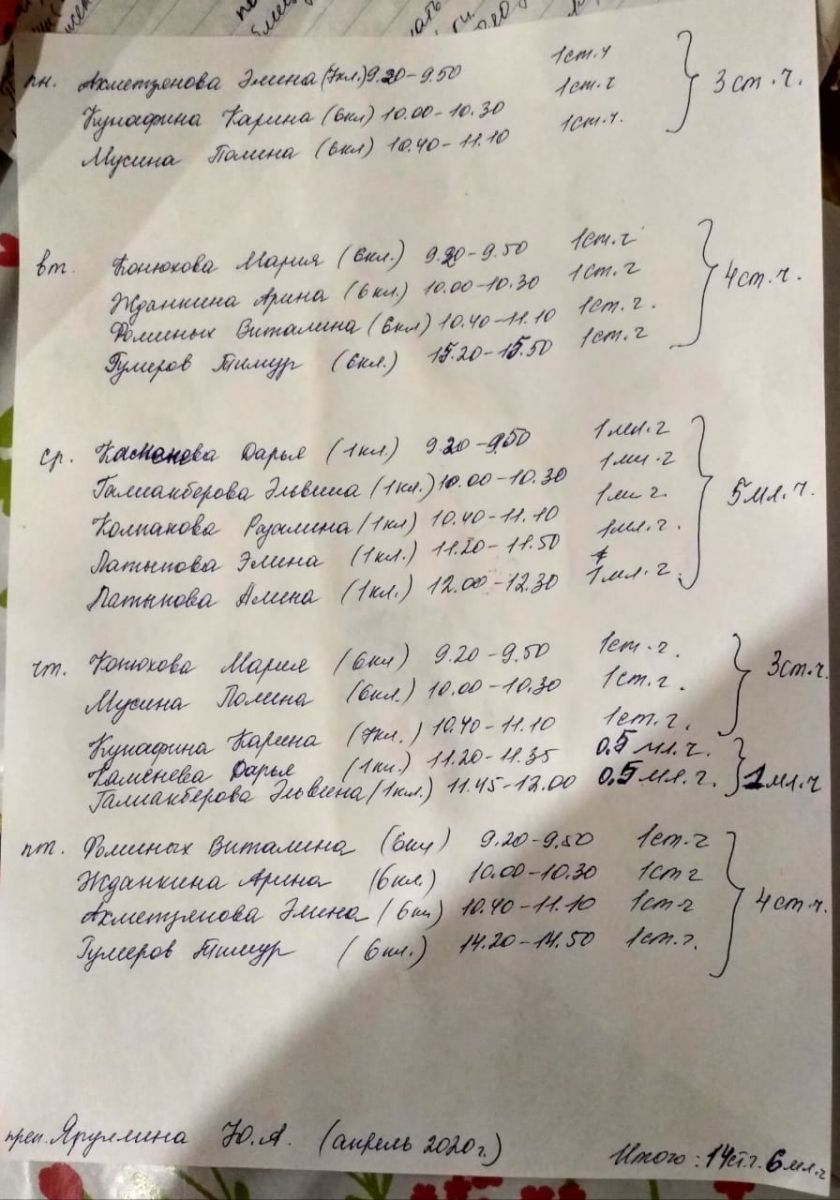 пн. Ахметзянова Элина (7кл.) 9.20-9.50 1ст.ч
Кунафина Карина (6кл) 10.00-10.30 1ст.ч
Мусина Полина (6кл) 10.40-11.10 1ст.ч.
3ст.ч.
вт. Конюхова Мария (6кл.) 9.20-9.50 1ст.ч
Жданкина Арина (6кл.) 10.00-10.30 1ст.ч
Фоминых Виталина (6кл) 10.40-11.10 1ст.ч.
Гумеров Тимур (6кл.) 15.20-15.50 1ст.ч
4ст.ч.
ср. Дарья (1кл.) 9.20-9.50 1мл.ч
Галиакберова Эльвина (1кл.) 10.00-10.30 1мл.ч
Колпакова Розалина (1кл) 10.40-11.10 1мл ч.
Латыпова Элина (1кл.) 11.20-11.50 1мл.ч.
Латыпова Алина (1кл.) 12.00-12.30 1мл.ч.
5мл.ч.
чт. Конюхова Мария (6кл) 9.20-9.50 1ст.ч.
Мусина Полина (6кл.) 10.00-10.30 1ст.ч.
Кунафина Карина (7кл.) 10.40-11.10 1ст.ч.
3ст.ч.
Каменева Дарья (1кл.) 11.20-11.35 0.5мл.ч.
Галиакберова Эльвина (1кл.) 11.45-12.00 0.5мл.ч.
1мл.ч
пт. Фоминых Виталина (6кл) 9.20-9.50 1ст.ч
Жданкина Арина (6кл.) 10.00-10.30 1ст ч
Ахметзянова Элина (6кл) 10.40-11.10 1ст.ч
Гумеров Тимур (6кл.) 14.20-14.50 1ст.ч.
4ст.ч.
преп. Яруллина Ю.А. (апрель 2020г.)
Итого: 14ст.ч. 6мл.ч